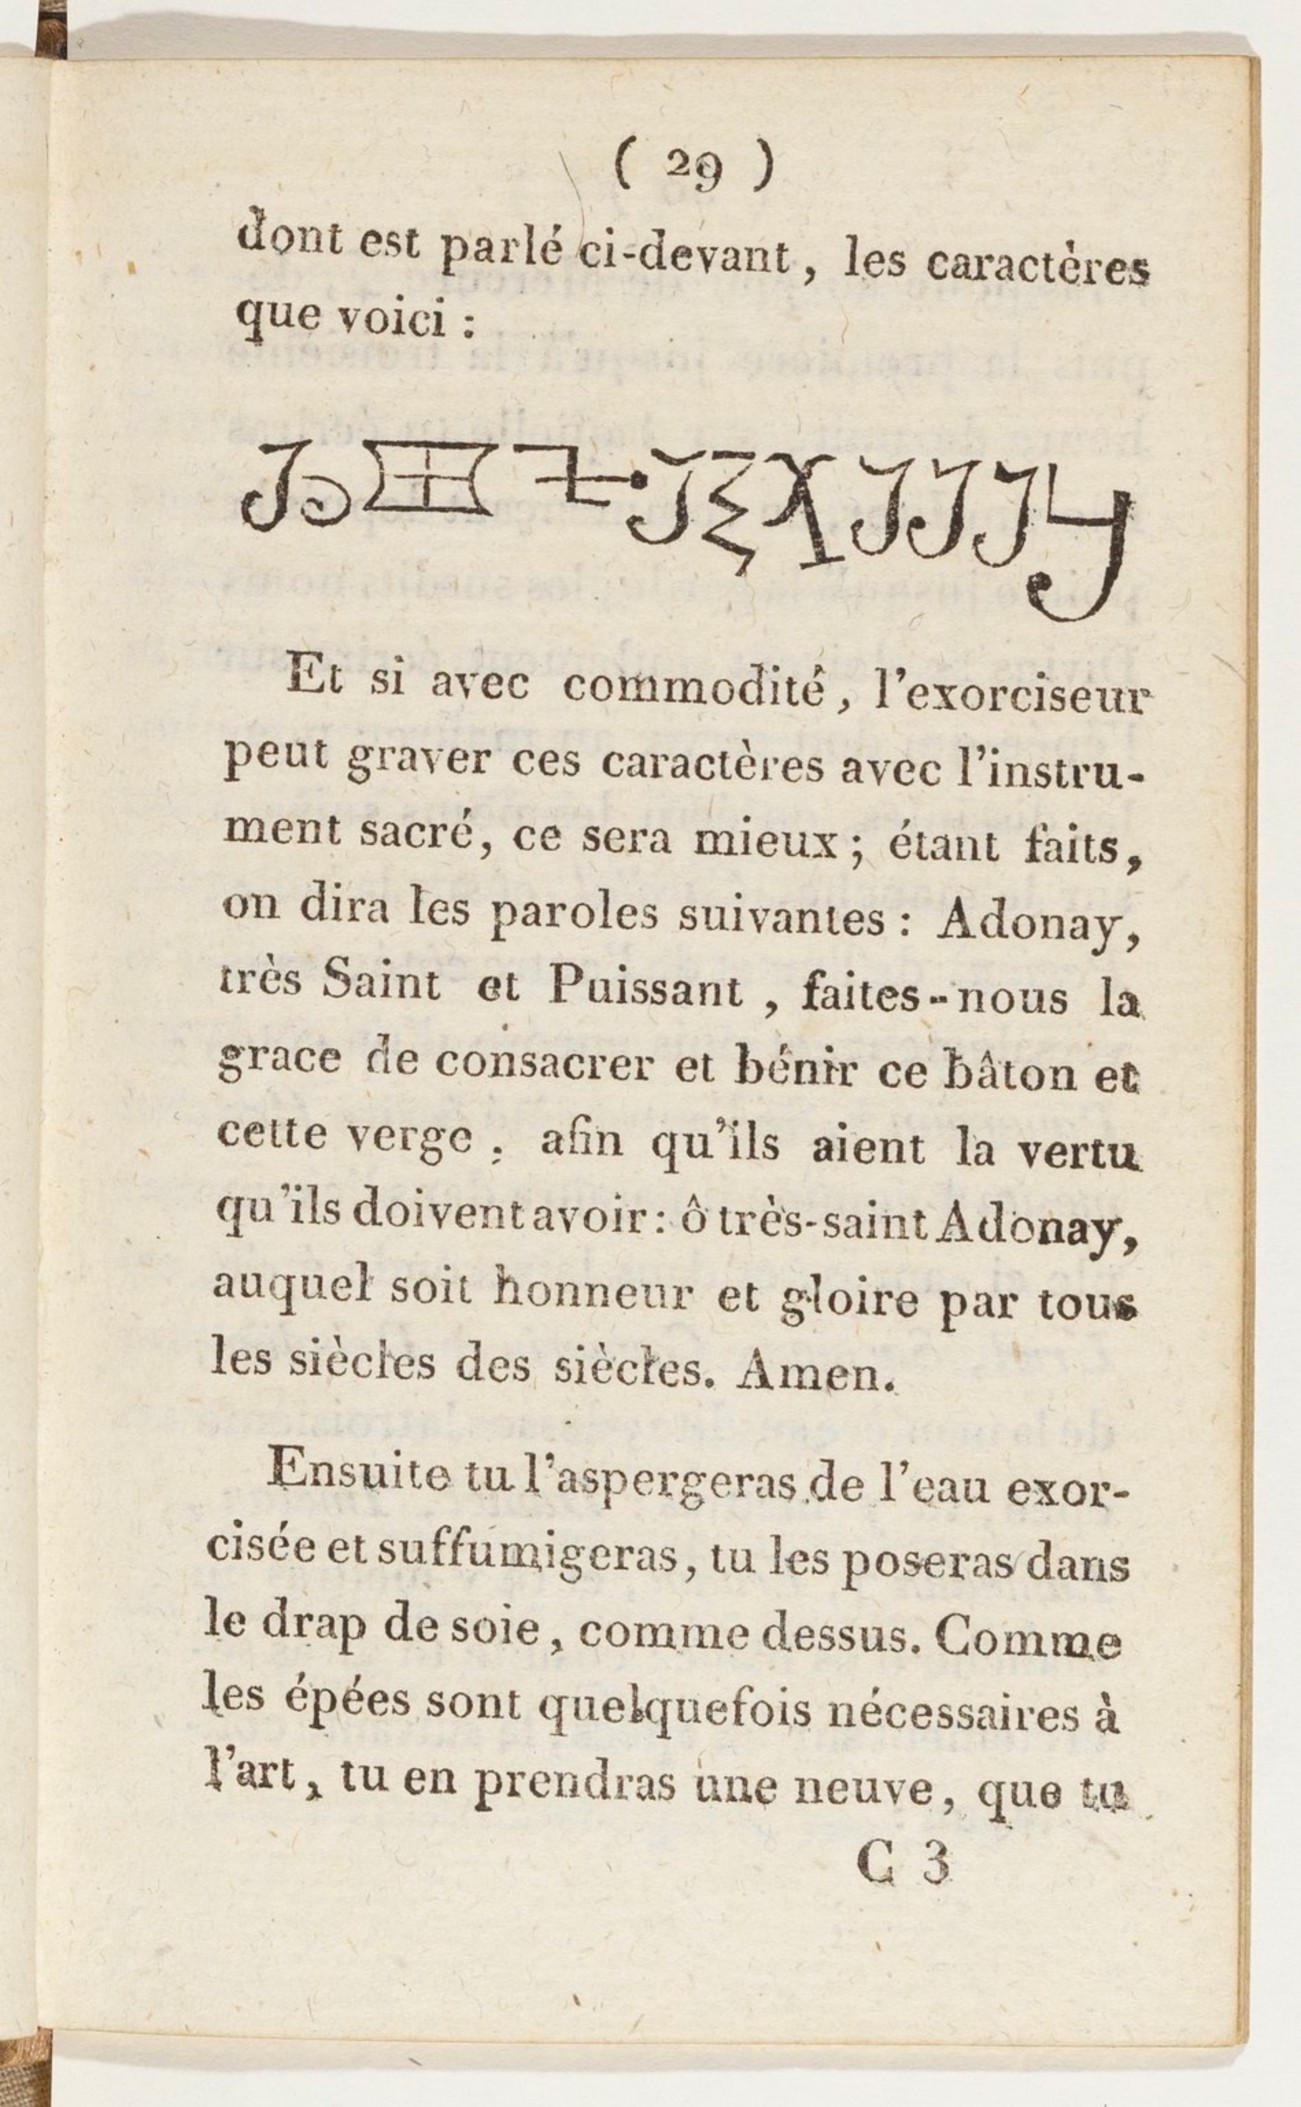 ( 29 )
dont est parlé ci-devant, les caractères
que voici :
Et si avec commodité, l'exorciseur
peut graver ces caractères avec l'instru-
ment sacré, ce sera mieux ; étant faits,
on dira les paroles suivantes : Adonay,
très Saint et Puissant , faites-nous la
grace de consacrer et bénir ce bâton et
cette verge , afin qu'ils aient la vertu
qu'ils doivent avoir : ô très-saint Adonay,
auquel soit honneur et gloire par tous
les siècles des siècles. Amen.
Ensuite tu l'aspergeras de l'eau exor-
cisée et suffumigeras, tu les poseras dans
le drap de soie, comme dessus. Comme
les épées sont quelquefois nécessaires à
l'art, tu en prendras une neuve, que tu
C 3